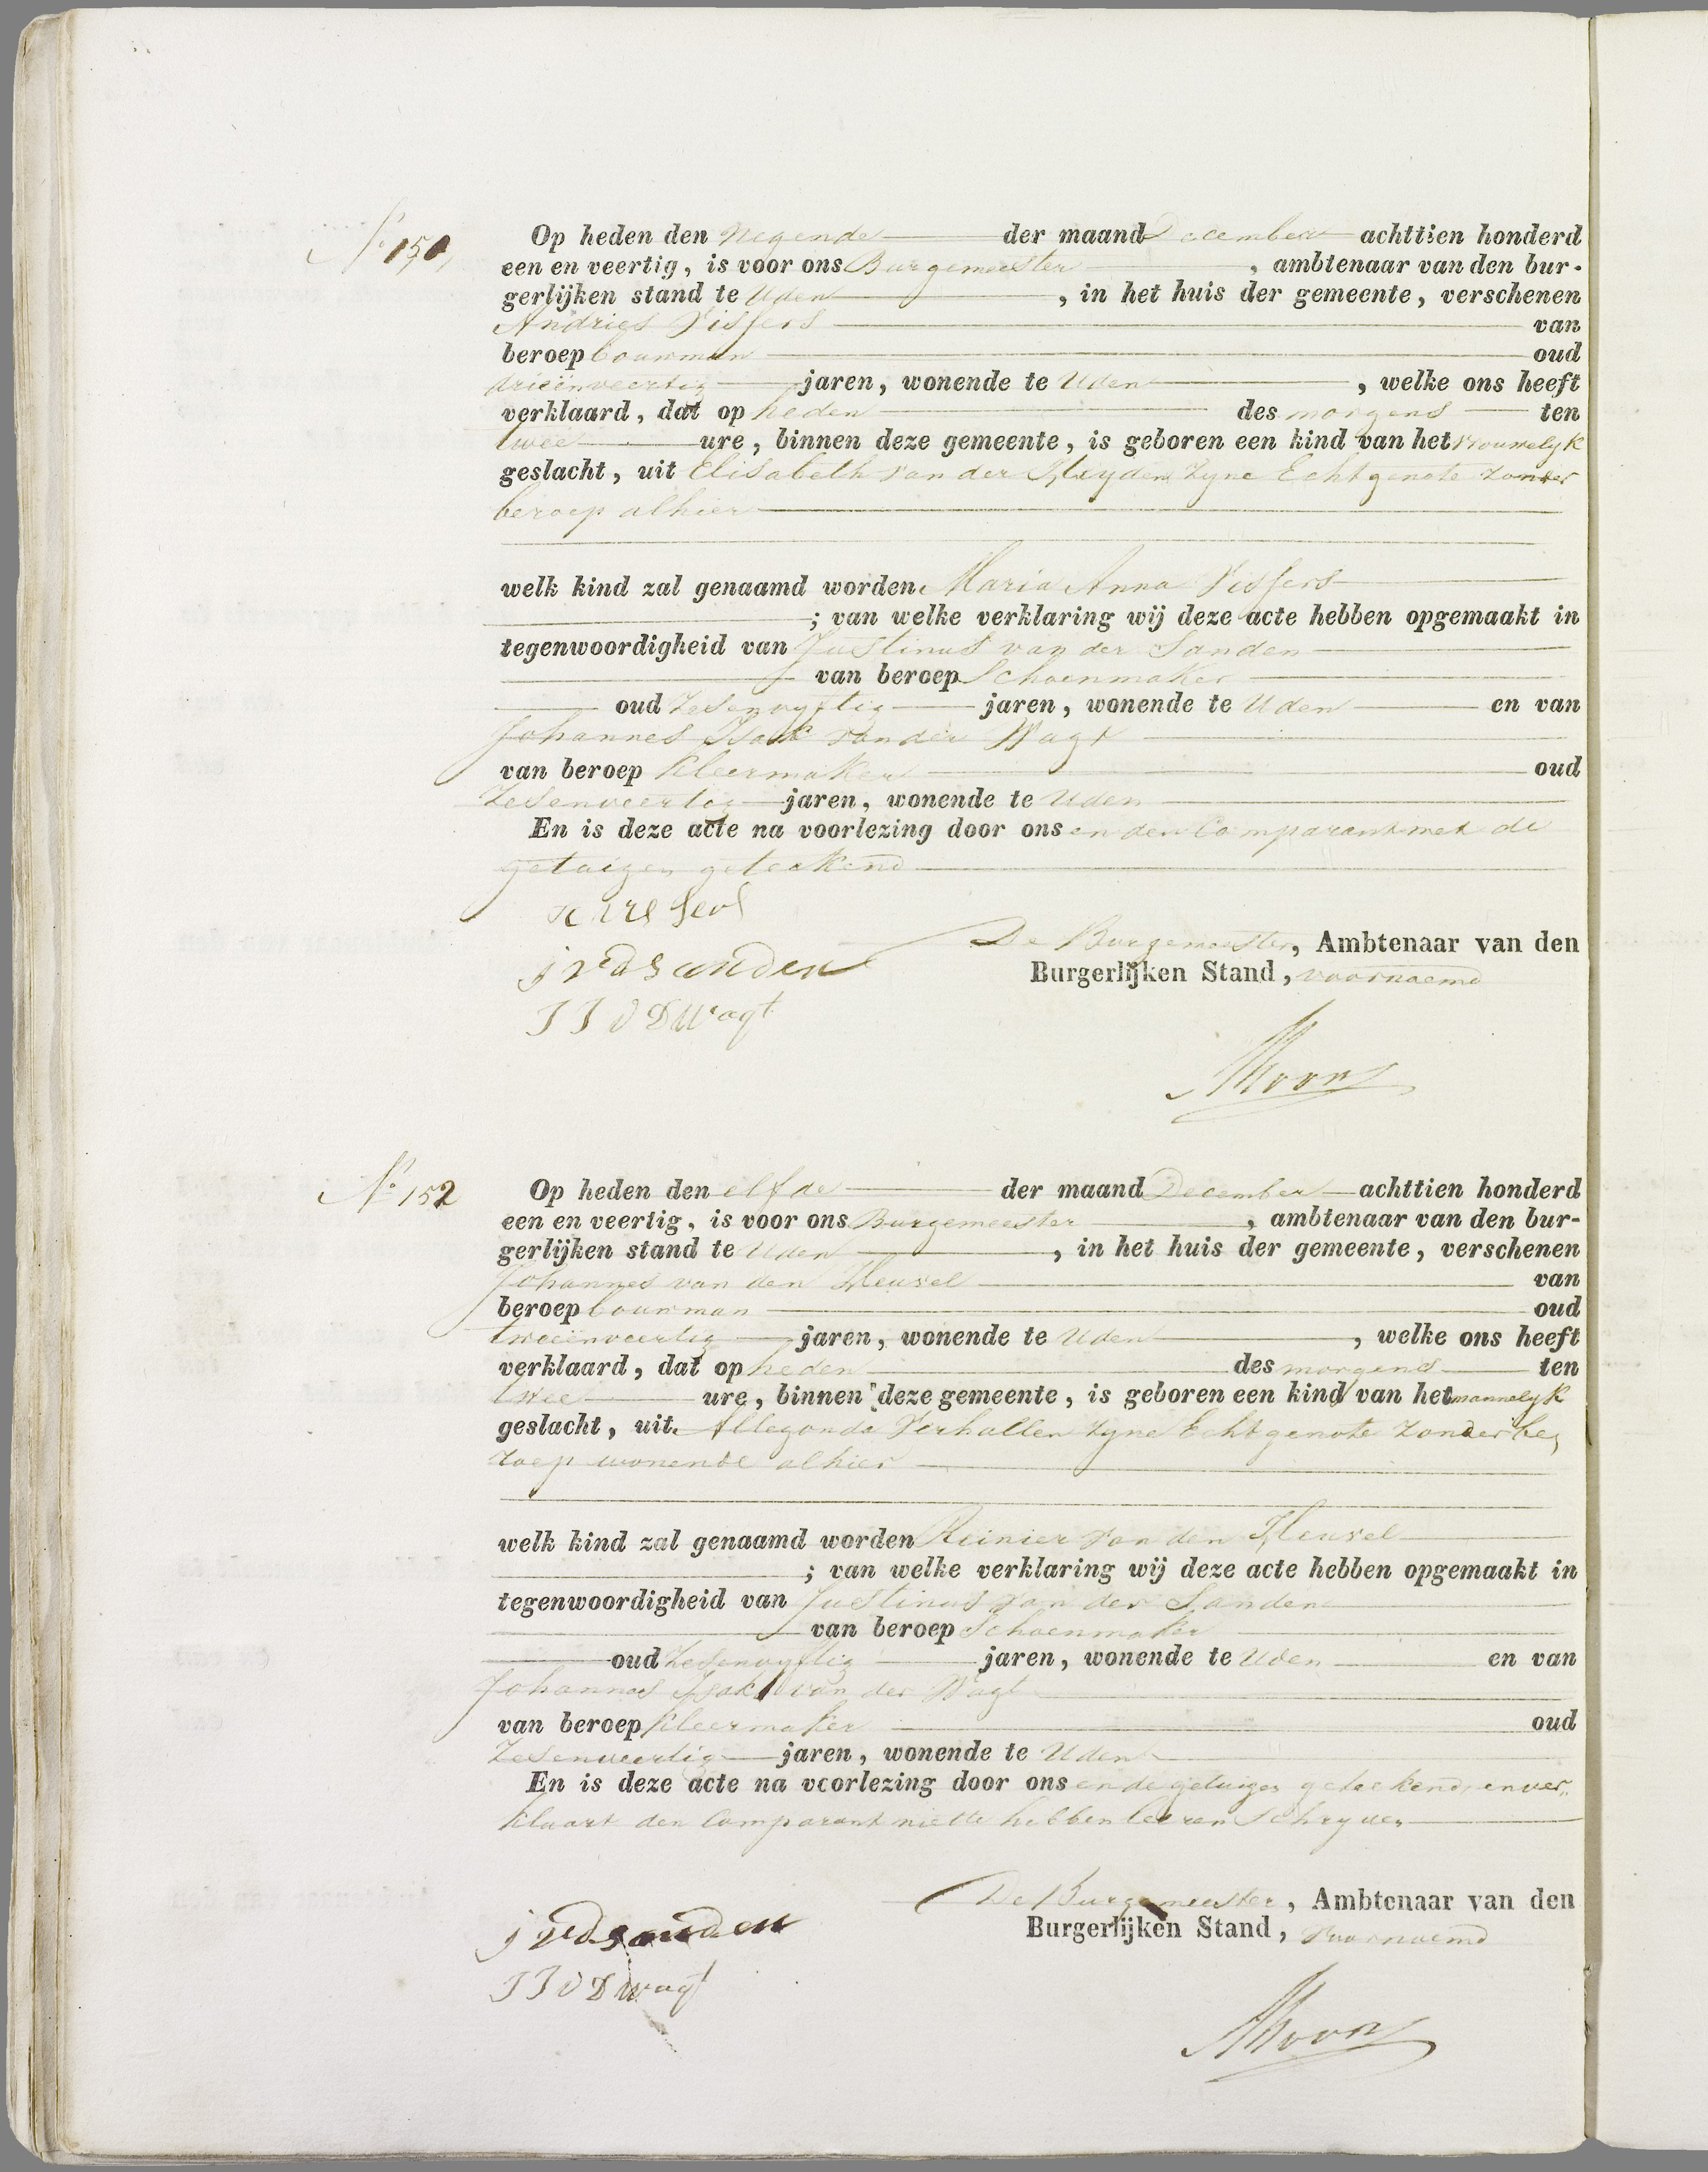 No 151,
Op heden den Negende der maand December achttien honderd
een en veertig, is voor ons Burgemeester, ambtenaar van den bur-
gerlijken stand te Uden, in het huis der gemeente, verschenen
Andries Vissers van
beroep bouwman oud
drieënveertig jaren, wonende te Uden, welke ons heeft
verklaard, dat op heden des morgens ten
twee ure, binnen deze gemeente, is geboren een kind van het vrouwelyk
geslacht, uit Elisabeth van der Heyden zyne Echtgenote zonder
beroep alhier
welk kind zal genaamd worden Maria Anna Vissers
; van welke verklaring wij deze acte hebben opgemaakt in
tegenwoordigheid van Justinus van der Sanden
van beroep Schoenmaker
oud Zesenvyftig jaren, wonende te Uden en van
Johannes Isak van der Wagt
van beroep Kleermaker oud
Zesenveertig jaren, wonende te Uden
En is deze acte na voorlezing door ons en den Comparant met de
getuigen geteekend
De Burgemeester, Ambtenaar van den
Burgerlijken Stand, voornoemd
j vd sanden
J J V D Wagt
No 152
Op heden den elfde der maand December achttien honderd
een en veertig, is voor ons Burgemeester, ambtenaar van den bur-
gerlijken stand te Uden, in het huis der gemeente, verschenen
Johannes van den Heuvel van
beroep bouwman oud
tweeënveertig jaren, wonende te Uden, welke ons heeft
verklaard, dat op heden des morgens ten
twee ure, binnen deze gemeente, is geboren een kind van het mannelyk
geslacht, uit Allegonda Verhallen zyne Echtgenote zonder be,
roep wonende alhier
welk kind zal genaamd worden Reinier van den Heuvel
; van welke verklaring wij deze acte hebben opgemaakt in
tegenwoordigheid van Justinus van der Sanden
van beroep Schoenmaker
oud Zesenvyftig jaren, wonende te Uden en van
Johannes Isak van der Wagt
van beroep Kleermaker oud
Zesenveertig jaren, wonende te Uden
En is deze acte na voorlezing door ons en de getuigen geteekend, en ver,,
klaart den Comparant niet te hebben leeren Schryven
De Burgemeester, Ambtenaar van den
Burgerlijken Stand, voornoemd
j vd sanden
J J V D Wagt